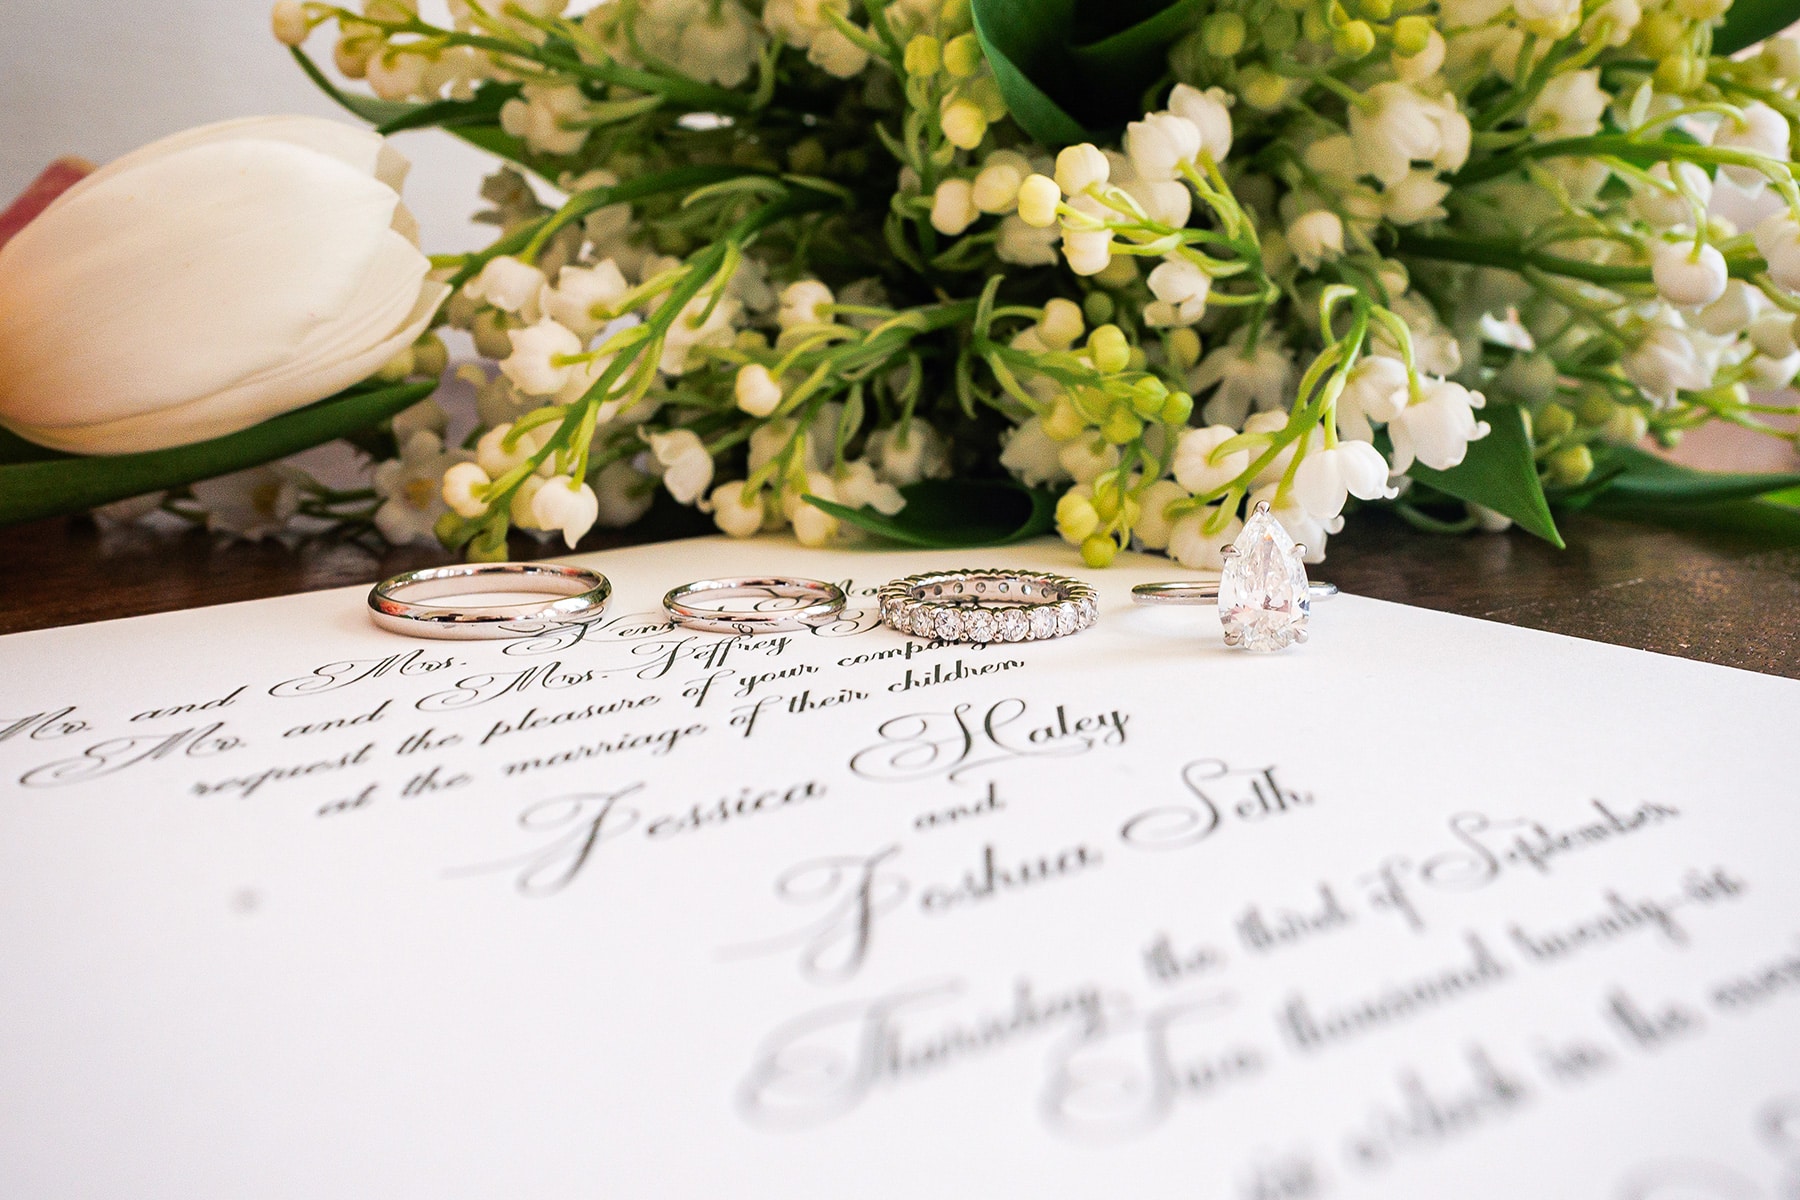 Mr. and Mrs.
Mr. and Mrs. Jeffrey
request the pleasure of your company
at the marriage of their children
Jessica Haley
and
Joshua Seth
Thursday, the third of September
Two thousand twenty-six
o'clock in the